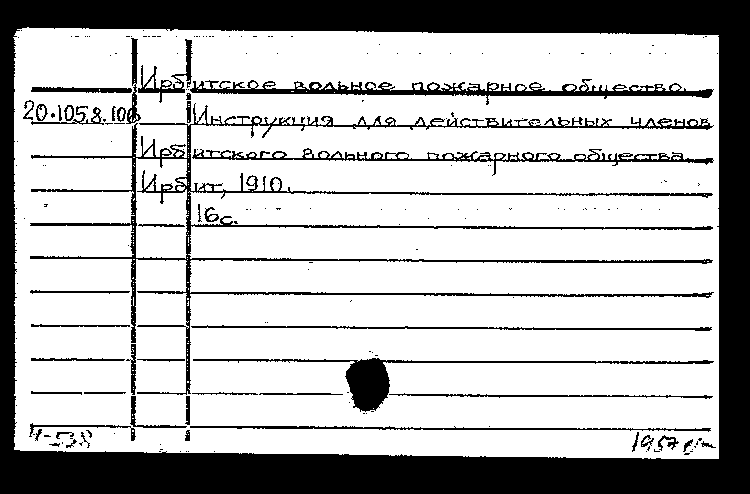 Ирбитское вольное пожарное общество.
20.105.8.106
Инструкция для действительных членов
Ирбитского вольного пожарного общества.
Ирбит, 1910.
16с.
Ч-538
1957